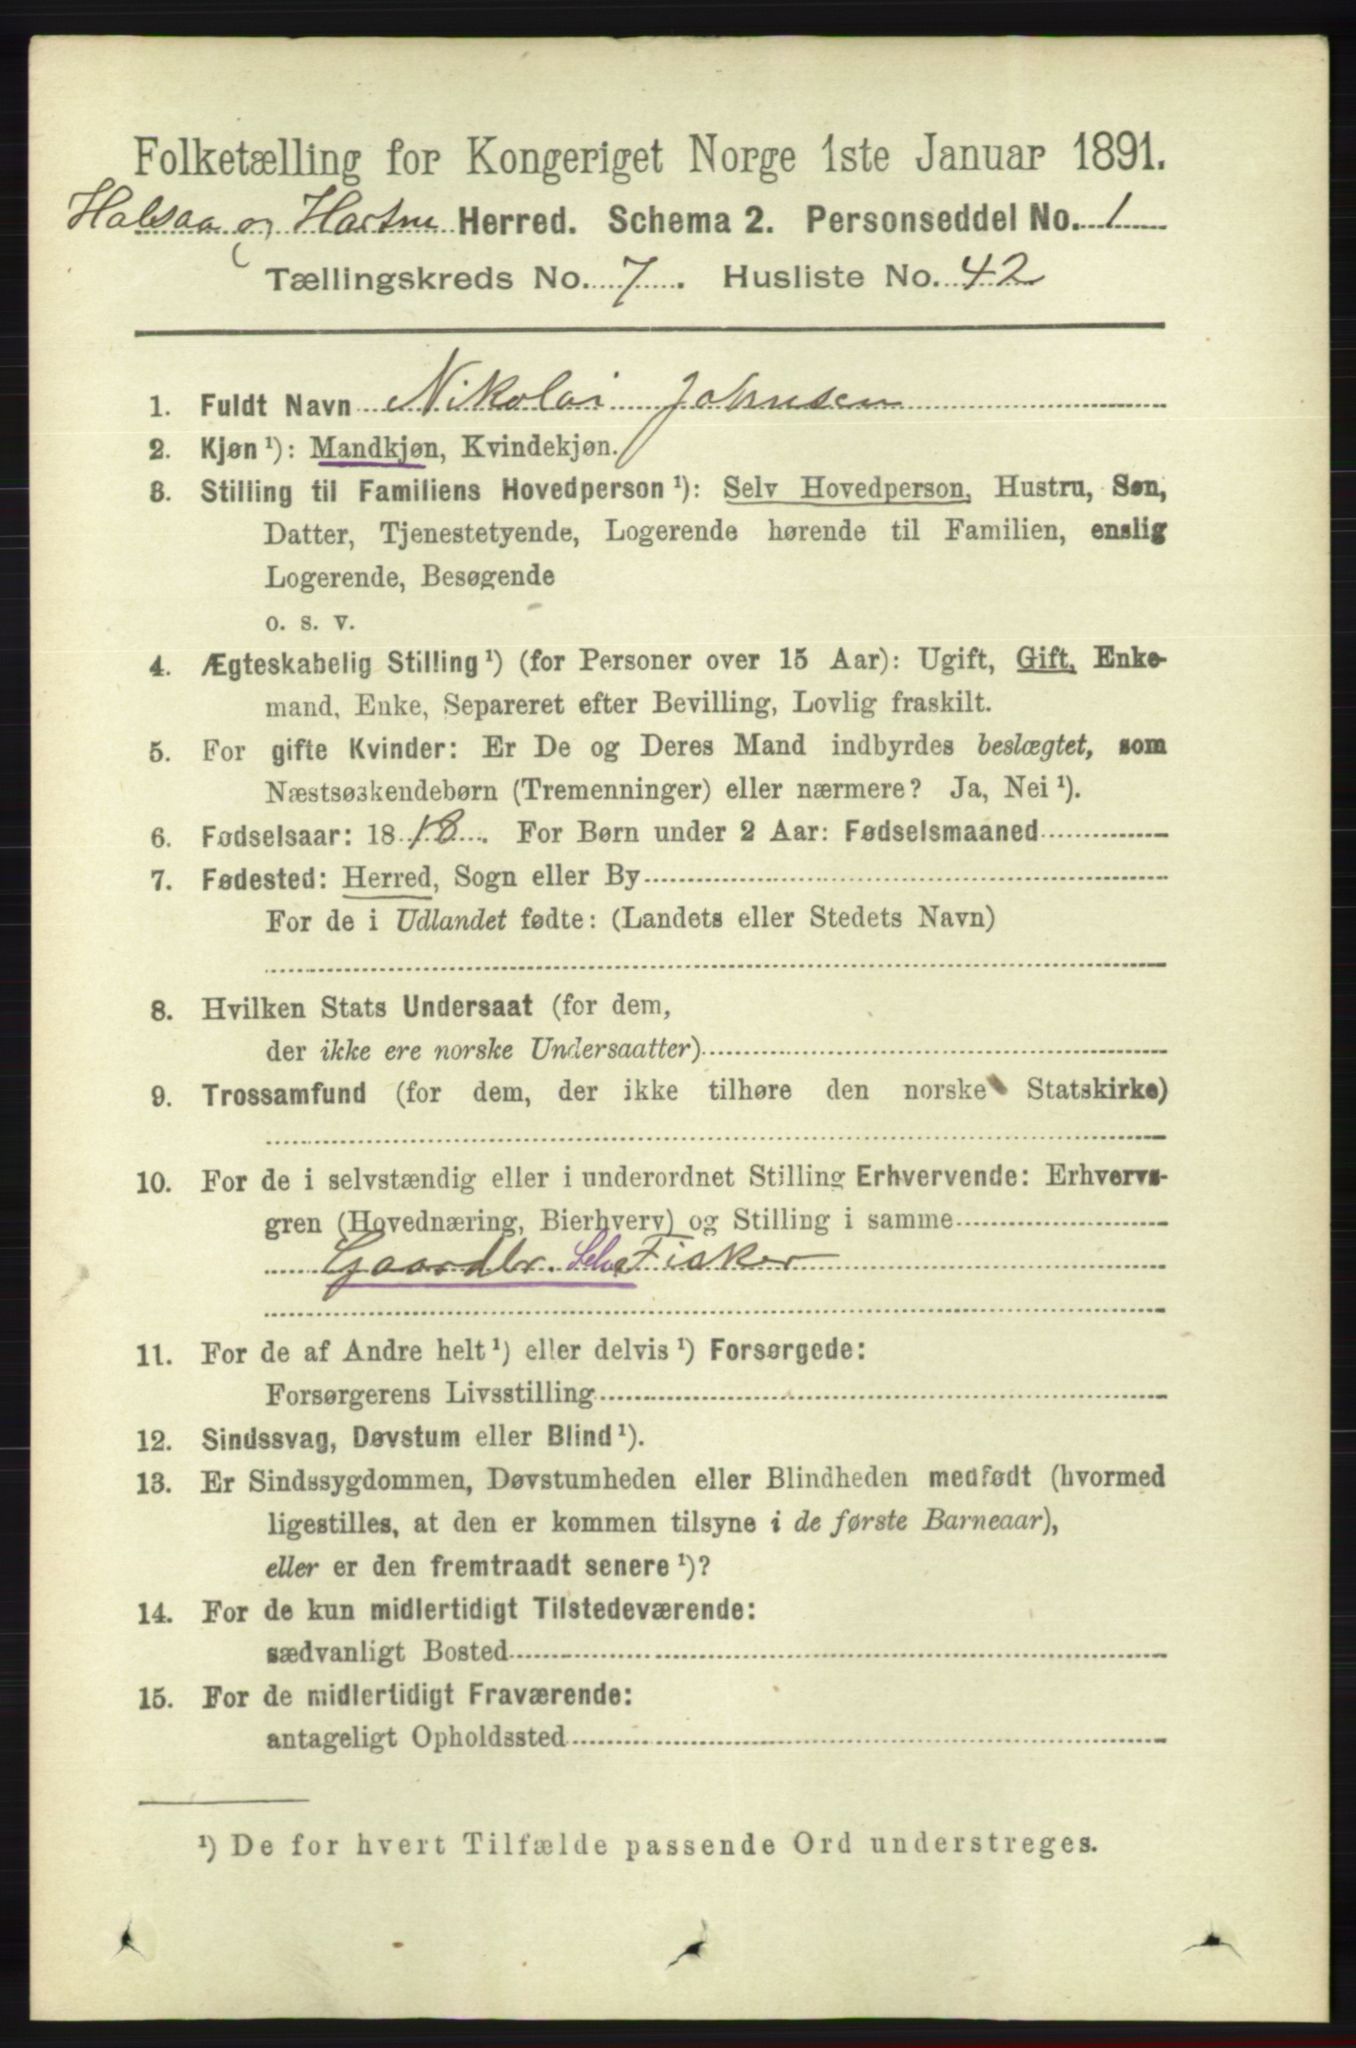 Folketælling for Kongeriget Norge 1ste Januar 1891.
Halsaa og Hartm Herred. Schema 2. Personseddel No. 1
Tællingskreds No. 7. Husliste No. 42
1. Fuldt Navn Nikolai Johnsen
2. Kjøn ¹): Mandkjøn, Kvindekjøn.
3. Stilling til Familiens Hovedperson ¹): Selv Hovedperson, Hustru, Søn,
Datter, Tjenestetyende, Logerende hørende til Familien, enslig
Logerende, Besøgende
o. s. v.
4. Ægteskabelig Stilling ¹) (for Personer over 15 Aar): Ugift, Gift, Enke-
mand, Enke, Separeret efter Bevilling, Lovlig fraskilt.
5. For gifte Kvinder: Er De og Deres Mand indbyrdes beslægtet, som
Næstsøskendebørn (Tremenninger) eller nærmere? Ja, Nei ¹).
6. Fødselsaar: 1818. For Børn under 2 Aar: Fødselsmaaned
7. Fødested: Herred, Sogn eller By
For de i Udlandet fødte: (Landets eller Stedets Navn)
8. Hvilken Stats Undersaat (for dem,
der ikke ere norske Undersaatter)
9. Trossamfund (for dem, der ikke tilhøre den norske Statskirke)
10. For de i selvstændig eller i underordnet Stilling Erhvervende: Erhvervs-
gren (Hovednæring, Bierhverv) og Stilling i samme
Gaardbr. Selv Fisker
11. For de af Andre helt ¹) eller delvis ¹) Forsørgede:
Forsørgerens Livsstilling
12. Sindssvag, Døvstum eller Blind ¹).
13. Er Sindssygdommen, Døvstumheden eller Blindheden medfødt (hvormed
ligestilles, at den er kommen tilsyne i de første Barneaar),
eller er den fremtraadt senere ¹)?
14. For de kun midlertidigt Tilstedeværende:
sædvanligt Bosted
15. For de midlertidigt Fraværende:
antageligt Opholdssted
¹) De for hvert Tilfælde passende Ord understreges.